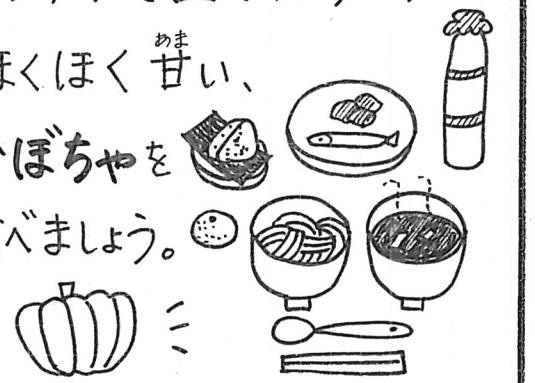 ほくほく甘い、
ぼちゃを
べましょう。